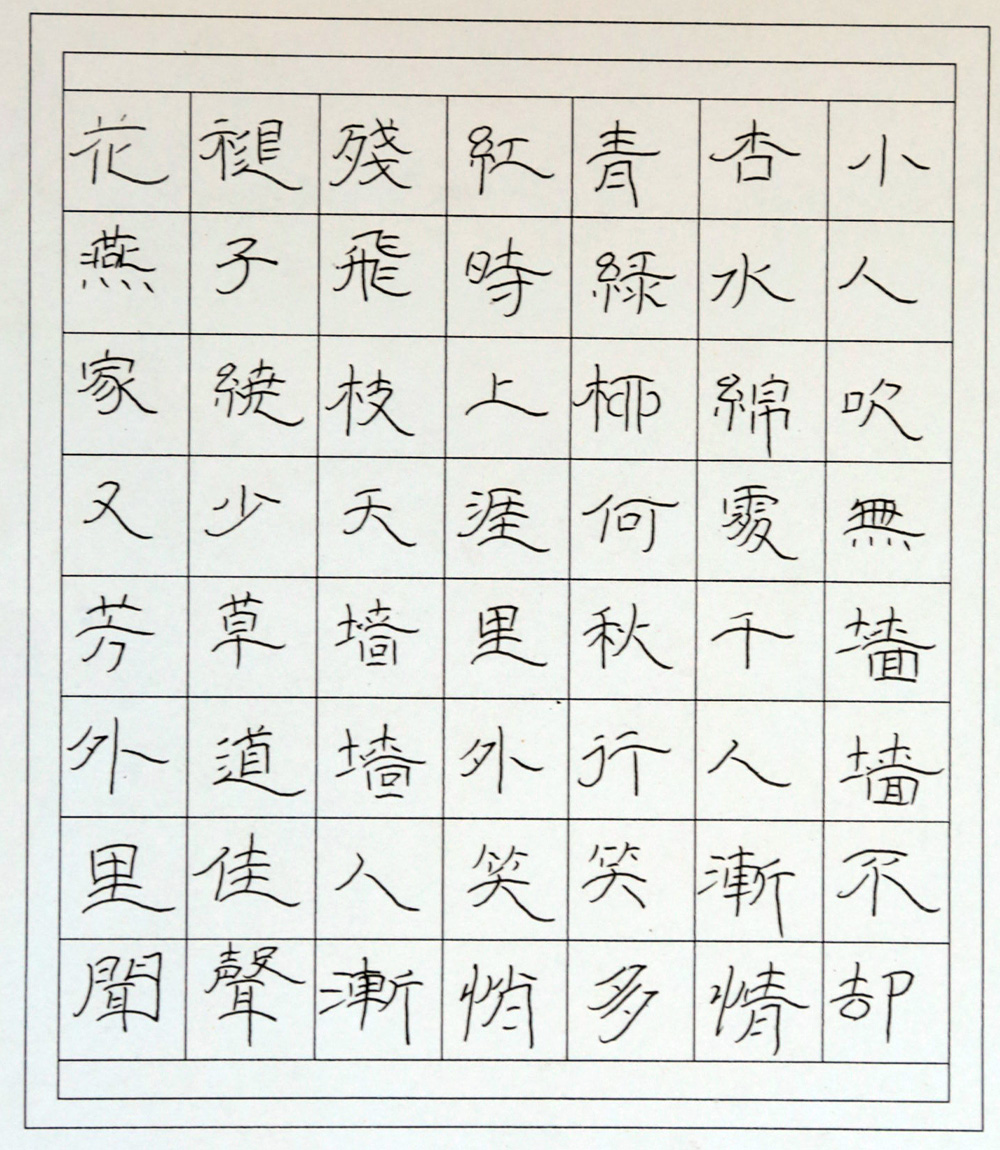 花褪殘紅青杏小
燕子飛時緑水人
家繞枝上柳綿吹
又少天涯何處無
芳草墙里秋千墙
外道墙外行人墙
里佳人笑笑漸不
聞聲漸悄多情却